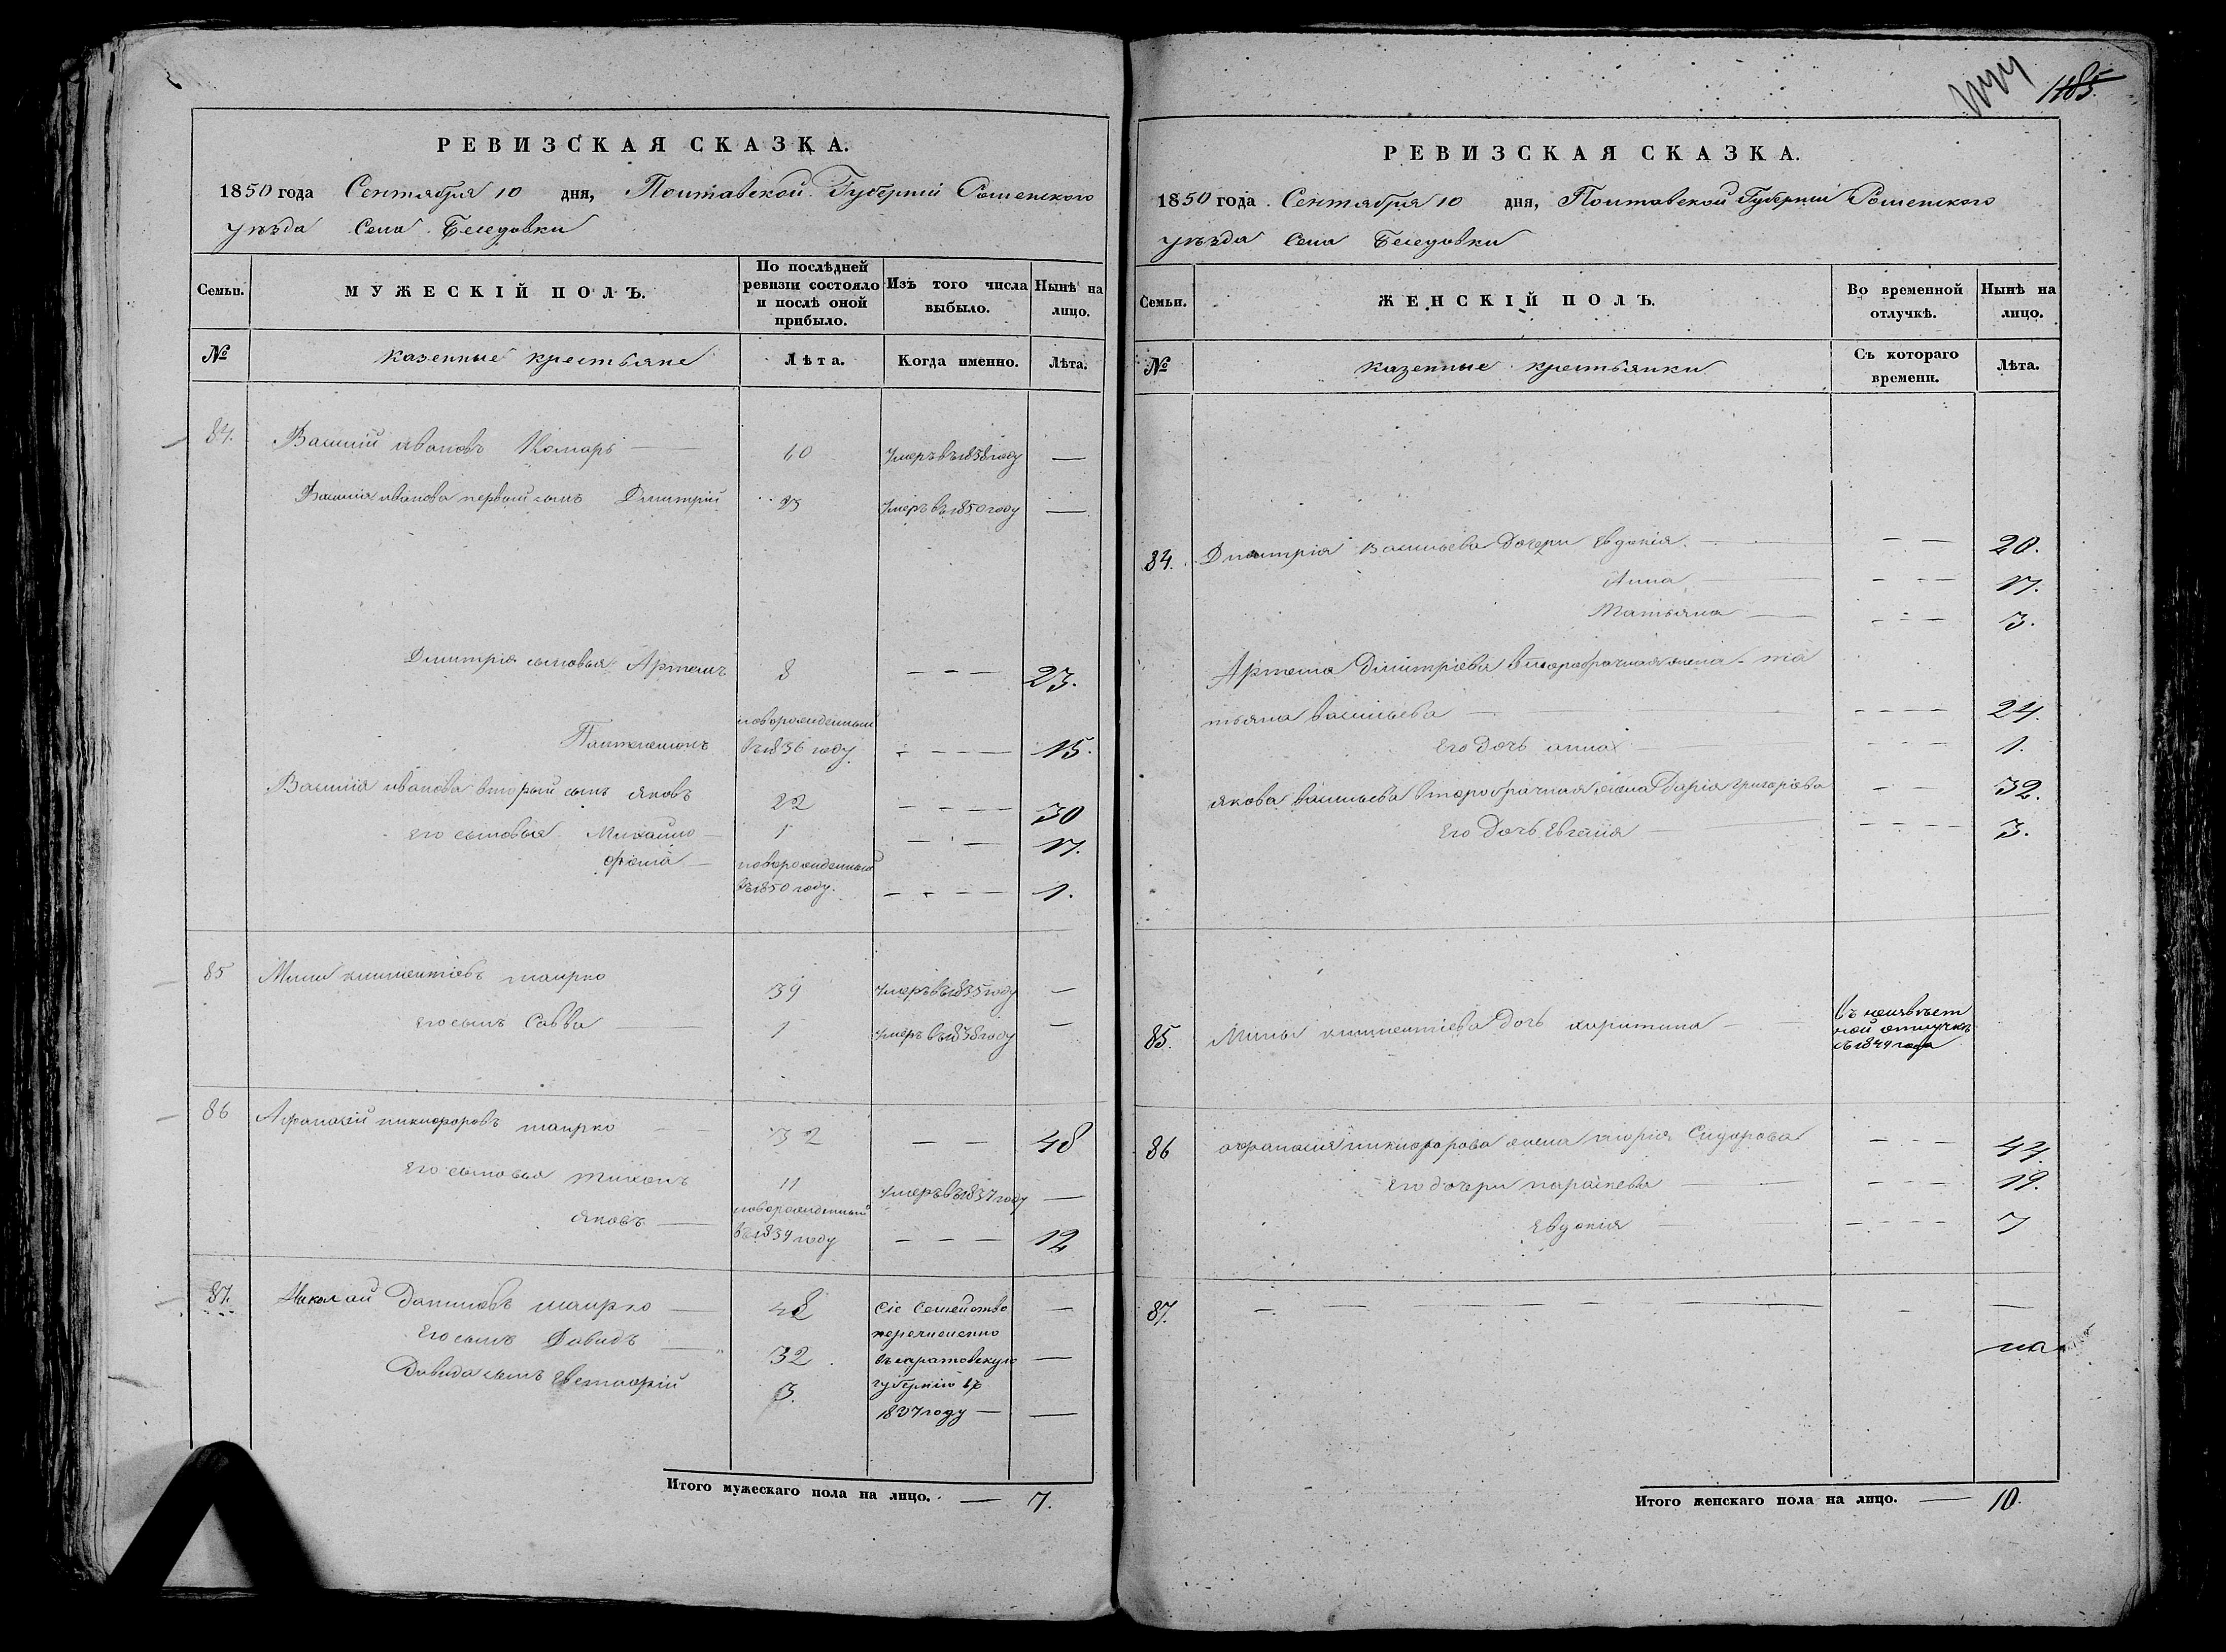 РЕВИЗСКАЯ СКАЗКА.
1850 года Сентября 10 дня, Полтавской Губерніи Роменского
уѣзда Села Беседовки
Семьи.
МУЖЕСКІЙ ПОЛЪ.
По послѣдней ревизіи состояло и послѣ оной прибыло.
Изъ того числа выбыло.
Нынѣ на лицо.
№
казенные крестьяне
Лѣта.
Когда именно.
Лѣта.
84. Василій Ивановъ Комарь — 60 Умеръ въ 1838 году —
Василія Иванова первый сынъ Дмитрій Умеръ въ 1850 году —
Дмитрія сыновья Артемъ 8 — — — 23.
новорожденный
Пантелимонъ въ 1836 году. — — — — 15.
Василія Иванова вторый сынъ Яковъ 22 — — — — 30
его сыновья Михайло — 1 — — — 17.
новорожденный
въ 1850 году. — — — — 1.
85 Мина климентіевъ 39 Умеръ въ 1835 году —
его сынъ Савва — 1 Умеръ въ 1838 году —
86 Афанасій никифоровъ 32 — — 48
его сыновья тихонъ 11 Умеръ въ 1837 году —
новорожденный
Яковъ — въ 1839 году — — — 12
87. Николай Даниловъ — 48 Сіе Семейство —
его сынъ Давидъ — 32 перечисленно
въ саратовскую —
Давида сынъ 3. губернію въ
1837 году — —
Итого мужескаго пола на лицо. — 7.
1185.
РЕВИЗСКАЯ СКАЗКА.
1850 года Сентября 10 дня, Полтавской Губерніи Роменского
уѣзда Села Беседовки
Семьи.
ЖЕНСКІЙ ПОЛЪ.
Во временной отлучкѣ.
Нынѣ на лицо.
№
казенные крестьянки
Съ котораго времени.
Лѣта.
84. Дмитрія Васильева дочери Евдокія. — — — 20.
Анна — — — — 17.
Татьяна — — — — 3.
Артема Дмитріева второбрачная жена - та
тьяна васильева — — — — — 24.
Его дочь анна — — — — 1.
якова васильева второбрачная жена Дарія григоріева — — 32.
Его дочь Евгенія — — — — — 3.
85. Мины климентіева дочь харитина — въ неизвѣст
ной отлучкѣ
съ 1844 года
86 афанасія никифорова жена марія Сидорова — — — 44.
Его дочери параскева — — — — 19.
Евдокія — — — — — 7
87. — — — — — —
Итого женскаго пола на лицо. — 10.